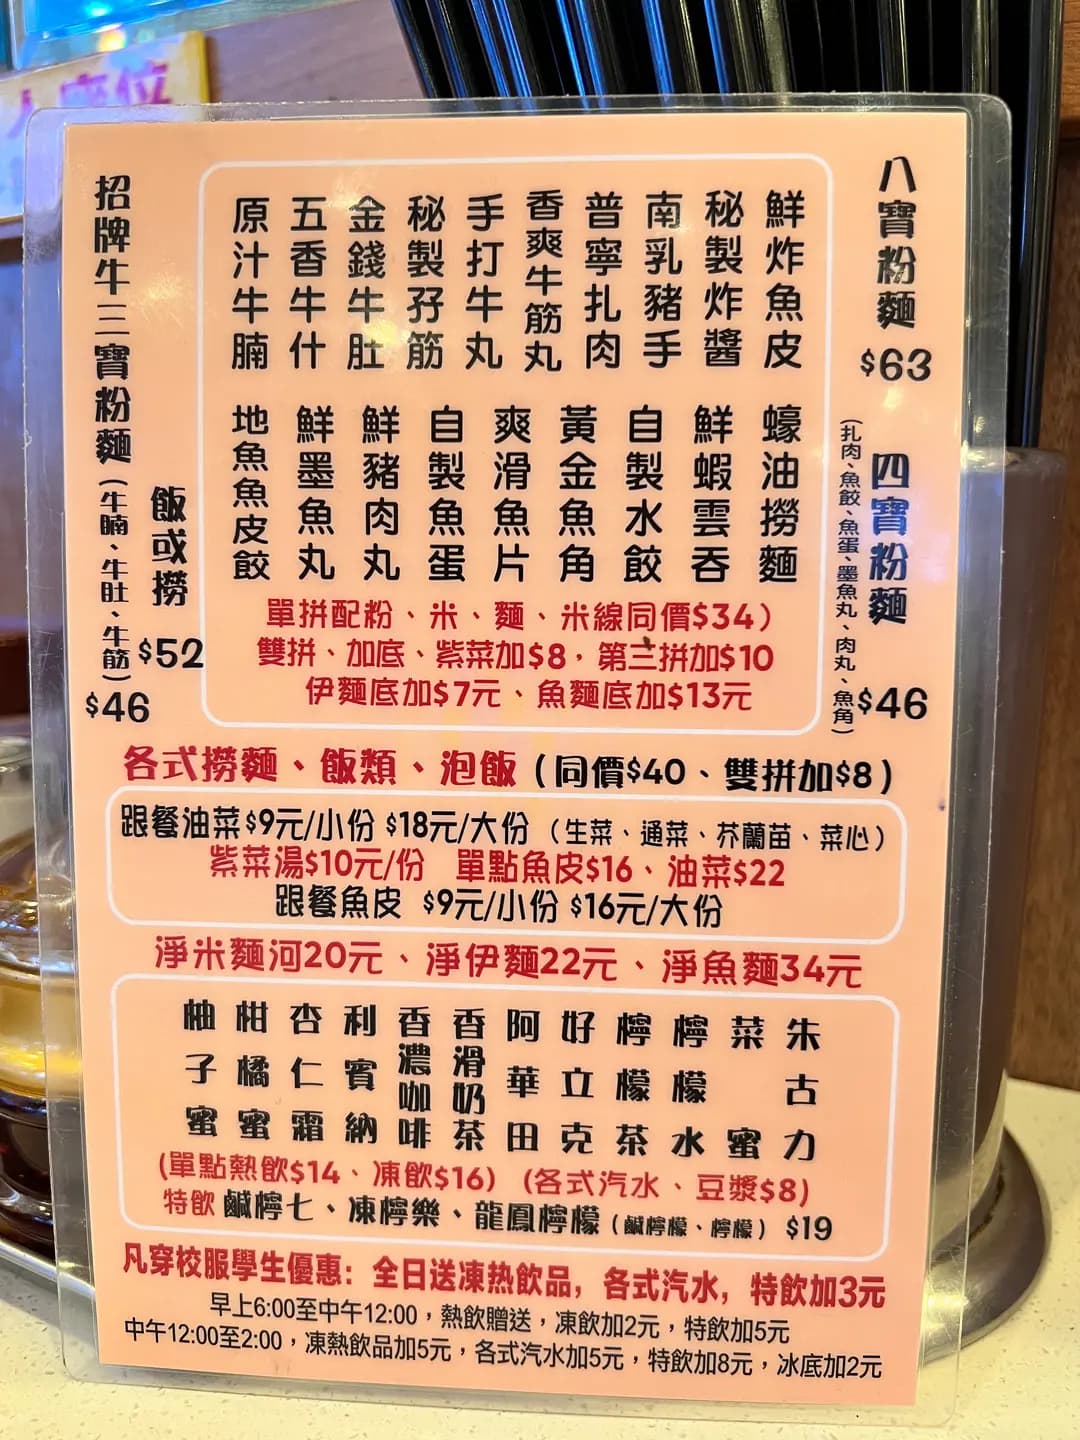 人座位
八寶粉麵
$63
四寶粉麵
(扎肉、魚餃、魚蛋、墨魚丸、肉丸、魚角)
$46
鮮炸魚皮
秘製炸醬
南乳豬手
普寧扎肉
香爽牛筋丸
手打牛丸
秘製孖筋
金錢牛肚
五香牛什
原汁牛腩
蠔油撈麵
鮮蝦雲吞
自製水餃
黃金魚角
爽滑魚片
自製魚蛋
鮮豬肉丸
鮮墨魚丸
地魚魚皮餃
單拼配粉、米、麵、米線同價$34)
雙拼、加底、紫菜加$8,第三拼加$10
伊麵底加$7元、魚麵底加$13元
飯或撈
$52
招牌牛三寶粉麵(牛腩、牛肚、牛筋)
$46
各式撈麵、飯類、泡飯(同價$40、雙拼加$8)
跟餐油菜$9元/小份 $18元/大份 (生菜、通菜、芥蘭苗、菜心)
紫菜湯$10元/份 單點魚皮$16、油菜$22
跟餐魚皮 $9元/小份 $16元/大份
淨米麵河20元、淨伊麵22元、淨魚麵34元
朱古力
菜蜜
檸檬水
檸檬茶
好立克
阿華田
香滑奶茶
香濃咖啡
利賓納
杏仁霜
柑橘蜜
柚子蜜
(單點熱飲$14、凍飲$16) (各式汽水、豆漿$8)
特飲 鹹檸七、凍檸樂、龍鳳檸檬(鹹檸檬、檸檬) $19
凡穿校服學生優惠:全日送凍热飲品,各式汽水,特飲加3元
早上6:00至中午12:00,熱飲贈送,凍飲加2元,特飲加5元
中午12:00至2:00,凍熱飲品加5元,各式汽水加5元,特飲加8元,冰底加2元